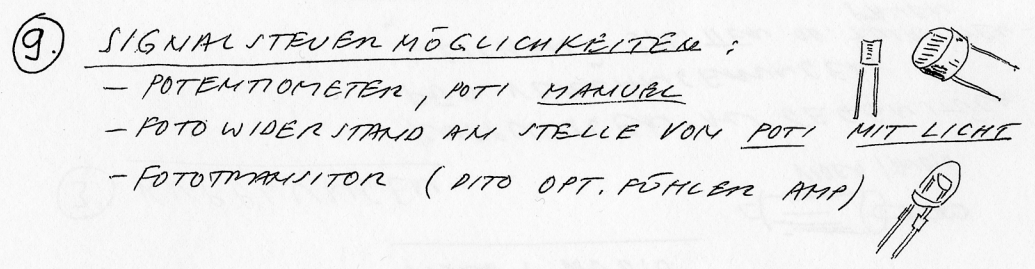 9. SIGNALSTEUERMÖGLICHKEITEN:
– POTENTIOMETER, POTI MANUEL
– FOTOWIDERSTAND AN STELLE VOM POTI MIT LICHT
– FOTOTRANSITOR (DITO OPT. FÜHLER AMP)